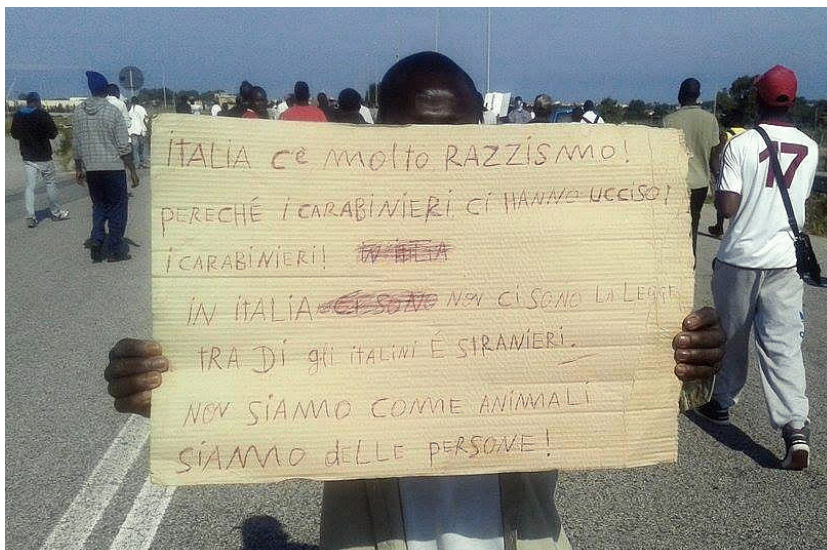 iTALiA C'è MOLTO RAZZiSMO!
PERECHÉ i CARABiNiERi Ci HANNO UCCiSO!
i CARABiNiERi!
iN iTALiA NON Ci SONO LA LEGGE
TRA Di gli iTALiNi É STRANiERi.
NON SiAMO COMME ANiMALi
SiAMO dELLE PERSONE!
17